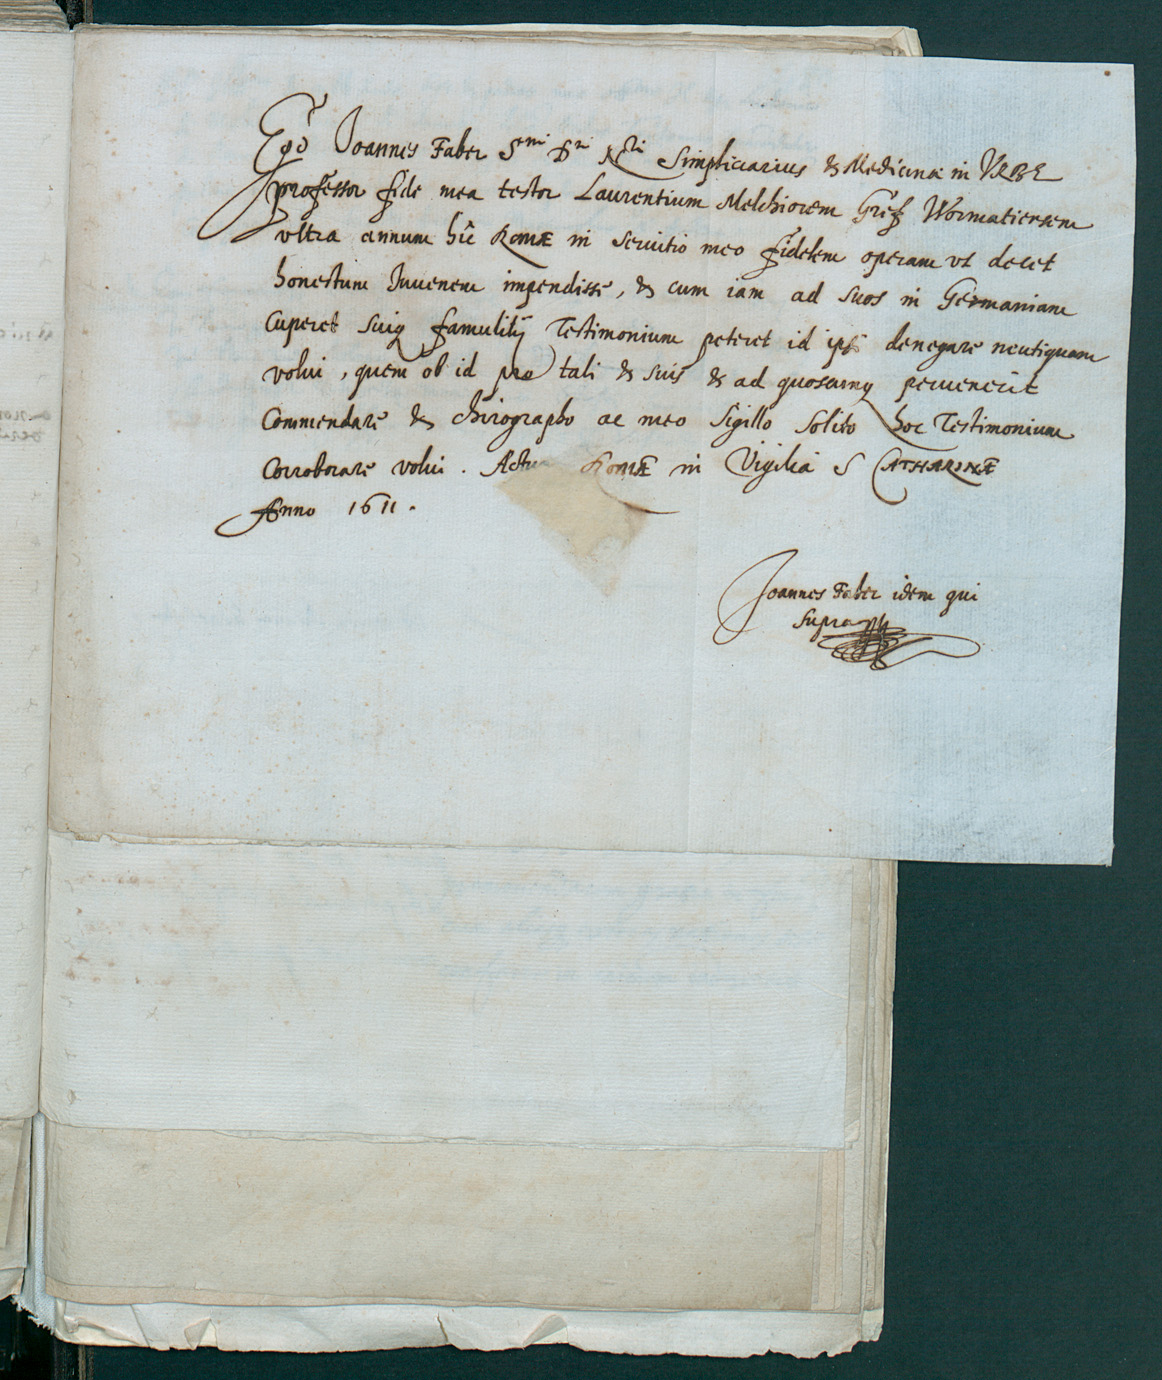 Ego Joannes Faber S.mi D.ni N.tri Simpliciarius & Medicinæ in VRBE
professor fide mea testor Laurentium Melchiorem Wormatiensem
vltra annum hic ROMÆ in seruitio meo fidelem operam vt decet
honestum Juuenem impendisse, & cum iam ad suos in Germaniam
Cuperet suiq famulitij Testimonium peteret id ipsi denegare neutiquam
volui, quem ob id pro tali & suis & ad quoscumq peruenerit
Commendare & chirographo ac meo Sigillo solito hoc Testimonium
Corroborare volui. Actum ROMÆ in Vigilia S CATHARINÆ
Anno 1611.
Joannes Faber idem qui
supra